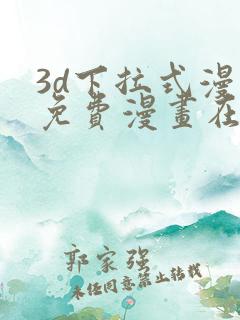 3d下拉式漫
免費漫畫在
郭家强
未经同意禁止转载